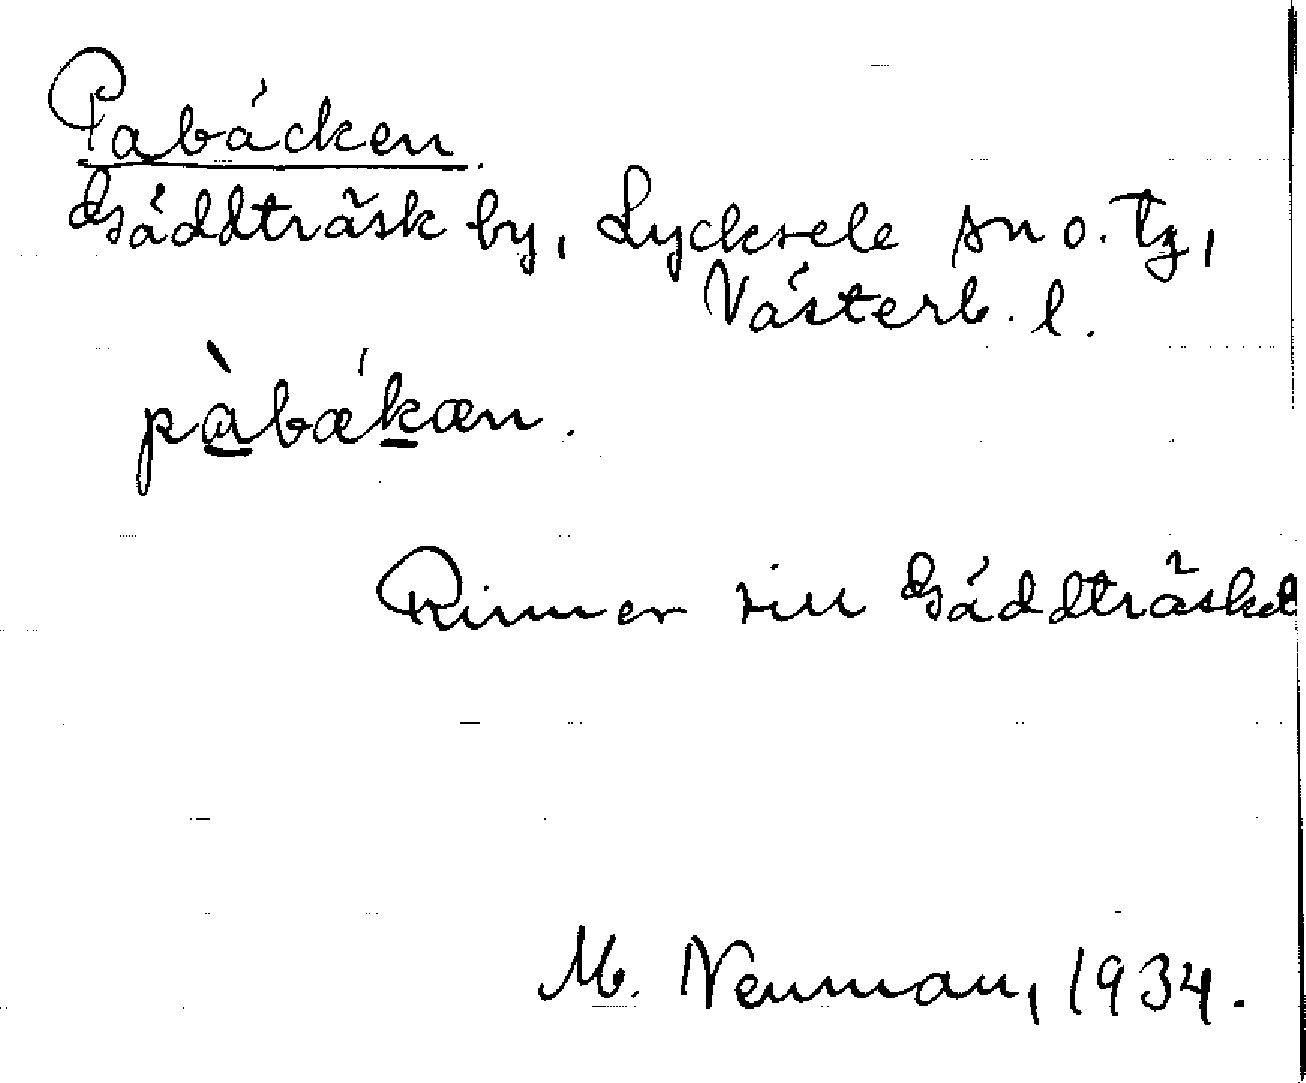 Pabäcken.
Gäddträsk by, Lycksele sn o. Tg,
Västerb. l.
pàbækæn.
Rinner till Gäddträsket
M. Neuman, 1934.